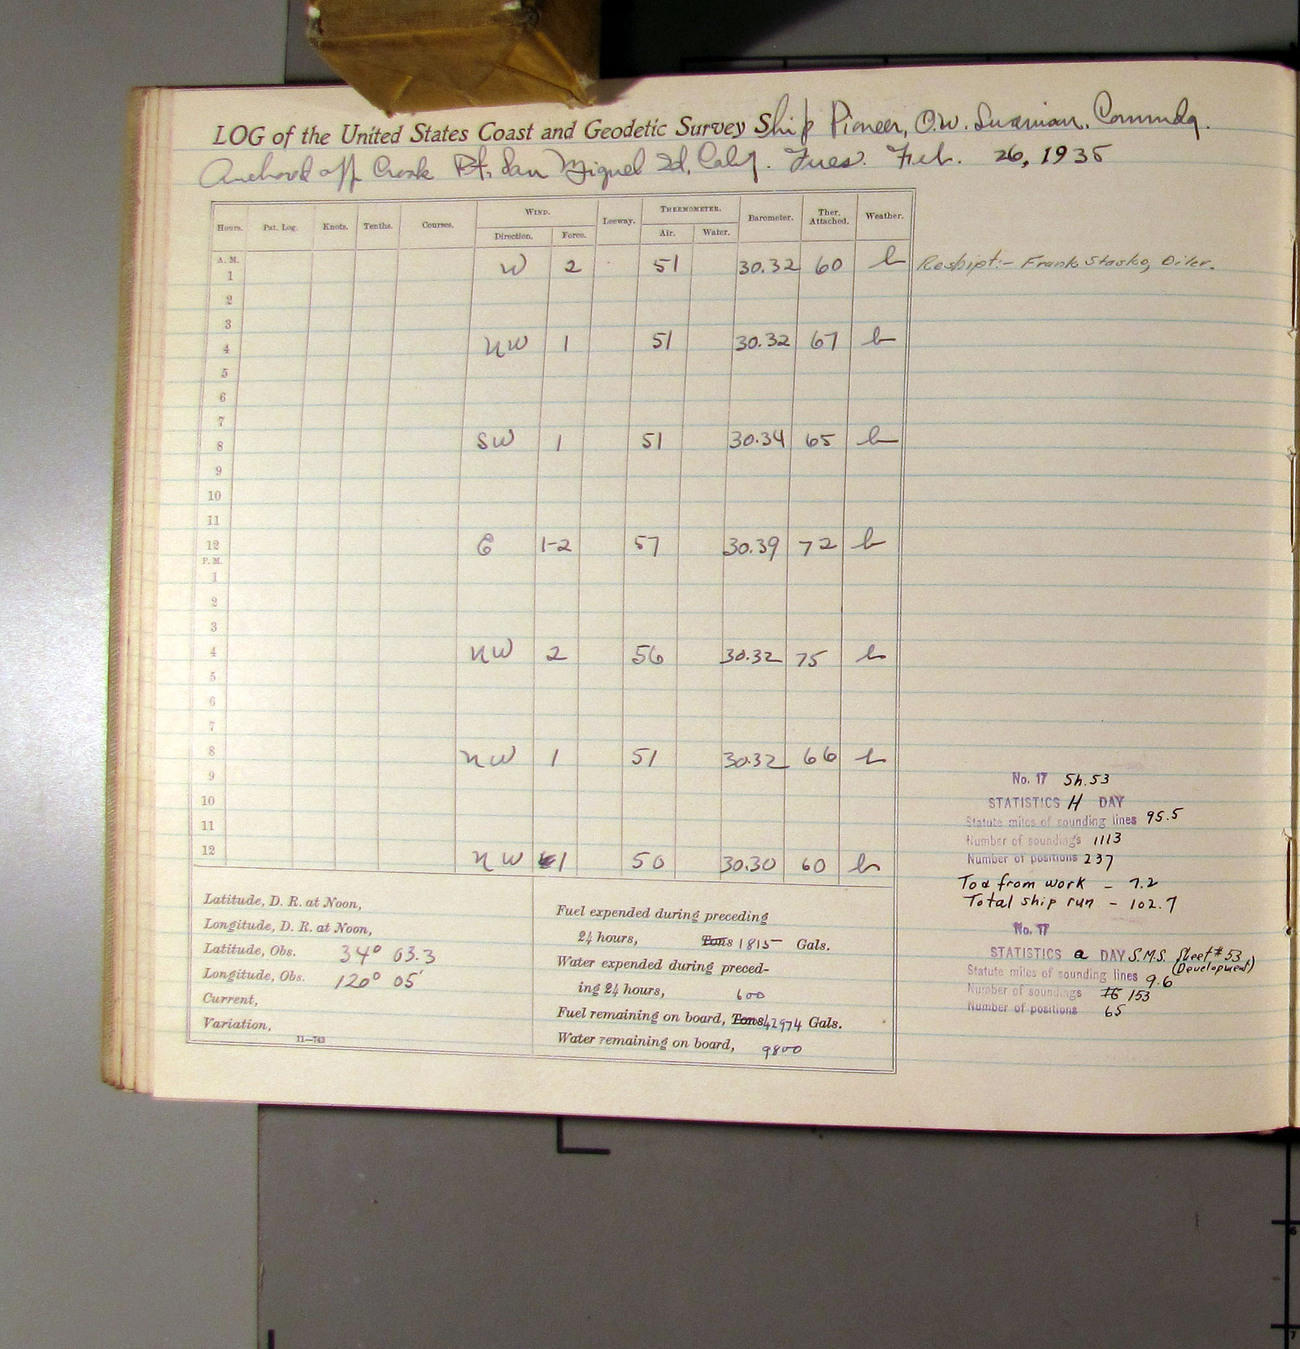 LOG of the United States Coast and Geodetic Survey Ship Pioneer, O.W. Swainson, Commdg.
Anchored off Crook Pt. San Miguel Id, Calif. Tues. Feb. 26, 1935
Hours. Pat. Log. Knots. Tenths. Courses. WIND. Direction. Force. Leeway. THERMOMETER. Air. Water. Barometer. Ther. Attached. Weather.
A. M.
1 W 2 51 30.32 60 b Reshipt:- Frank Stasko, Oiler.
2
3
4 NW 1 51 30.32 67 b
5
6
7
8 SW 1 51 30.34 65 b
9
10
11
12 E 1-2 57 30.39 72 b
P. M.
1
2
3
4 NW 2 56 30.32 75 b
5
6
7
8 NW 1 51 30.32 66 b
9
10
11
12 NW 1 50 30.30 60 b
No. 17 Sh. 53
STATISTICS H DAY
Statute miles of sounding lines 95.5
Number of soundings 1113
Number of positions 237
To & from work - 7.2
Total ship run - 102.7
No. 17
STATISTICS a DAY S.M.S. Sheet #53
(Development)
Statute miles of sounding lines 9.6
Number of soundings 153
Number of positions 65
Latitude, D. R. at Noon,
Longitude, D. R. at Noon,
Latitude, Obs. 34° 03.3
Longitude, Obs. 120° 05'
Current,
Variation,
11—743
Fuel expended during preceding
24 hours, Tons 1815 Gals.
Water expended during preced-
ing 24 hours, 600
Fuel remaining on board, Tons 42974 Gals.
Water remaining on board, 9800